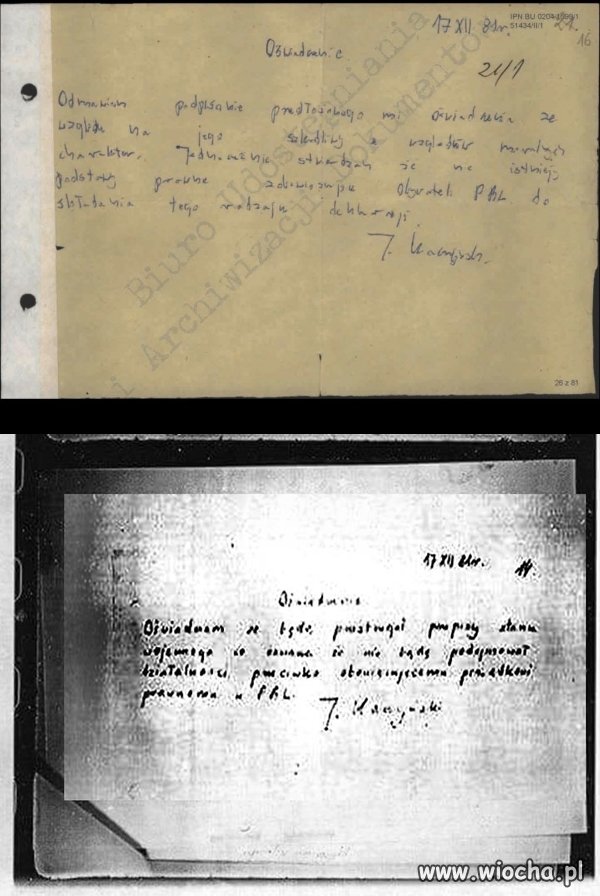 IPN BU 0204/1699/1
17 XII 81r. 51434/II/1
16
Oświadczenie
21/1
Odmawiam podpisania przedłożonego mi oświadczenia ze
względu na jego szkodliwy z względów moralnych
charakter. Jednocześnie stwierdzam że nie istnieją
podstawy prawne zobowiązujące Obywateli PRL do
składania tego rodzaju deklaracji.
J. Kaczyński.
Biuro Udostępniania
i Archiwizacji Dokumentów
26 z 81
17 XII 81r.
Oświadczenie
Oświadczam że będę przestrzegał przepisy stanu
wojennego co oznacza że nie będę podejmował
działalności przeciwko obowiązującemu porządkowi
prawnemu w PRL.
J. Kaczyński
www.wiocha.pl